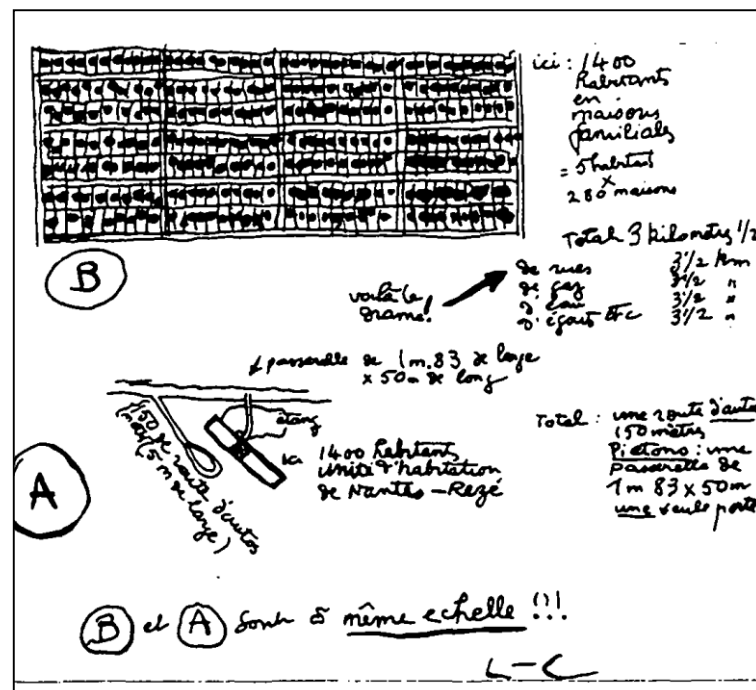 ici : 1400
habitants
en
maisons
familiales
= 5 habitants
x
280 maisons
Total 3 kilomètres 1/2
de rues 3 1/2 km
de gaz 3 1/2 "
d'eau 3 1/2 "
d'égouts Etc 3 1/2 "
voilà le
drame!
B
passerelle de 1m.83 de large
x 50m de long
étang
150 de route d'autos
(5m de large)
ici
1400 habitants
Unité d'habitation
de Nantes – Rezé
A
Total : une route d'auto
150 mètres
Piétons : une
passerelle de
1m 83 x 50m
une seule porte
B et A sont à même echelle !!!
L–C